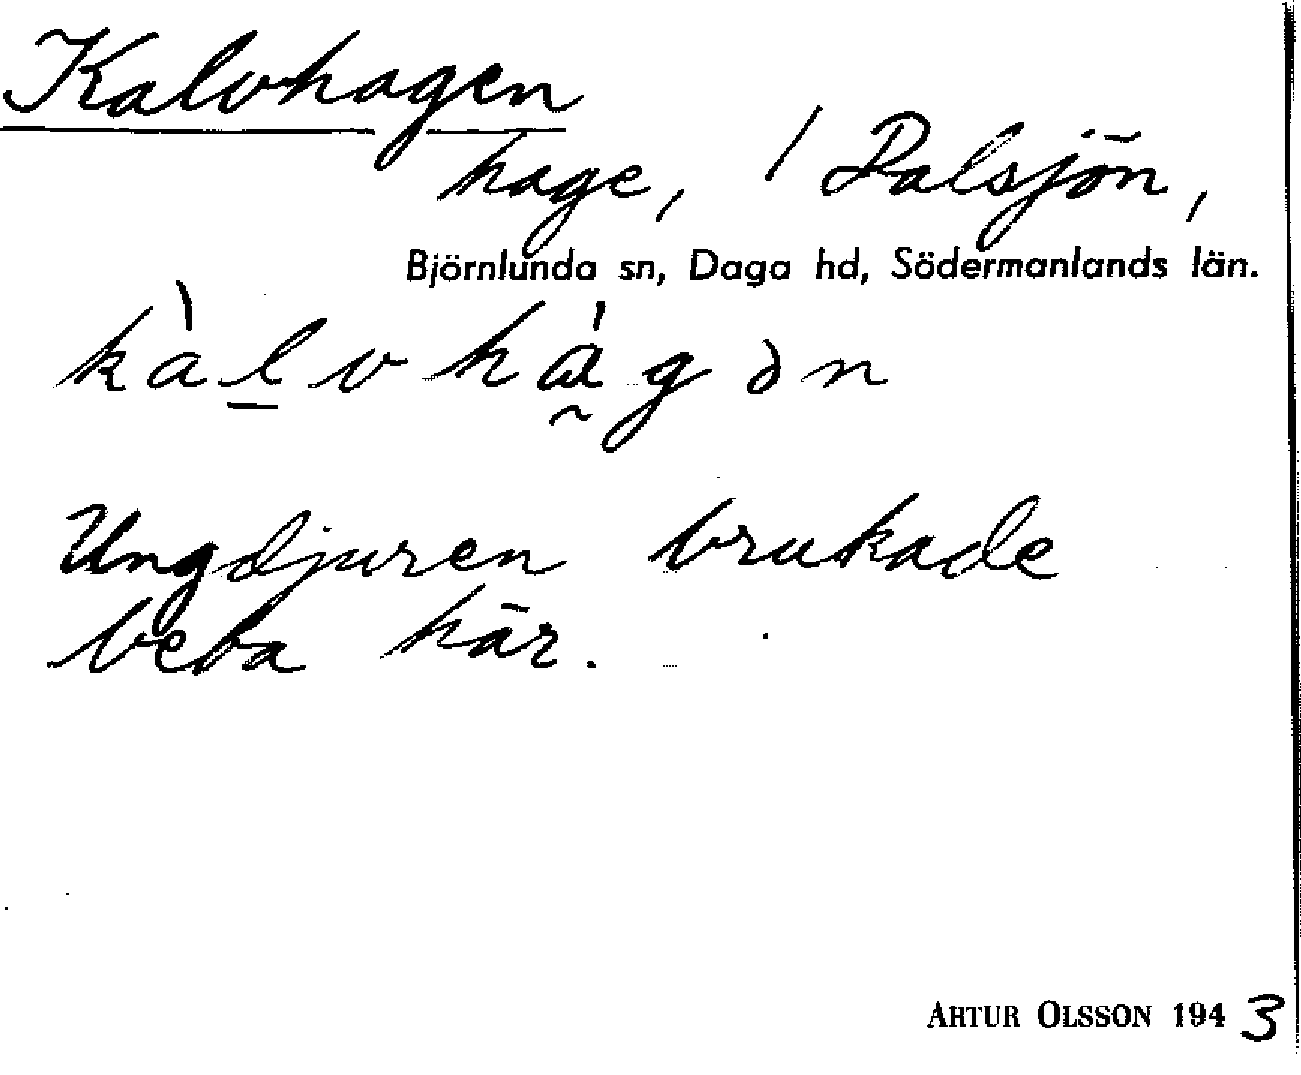 Kalvhagen
hage, / Dalsjön,
Björnlunda sn, Daga hd, Södermanlands län.
kàlvhágən
Ungdjuren brukade
beta här.
ARTUR OLSSON 1943